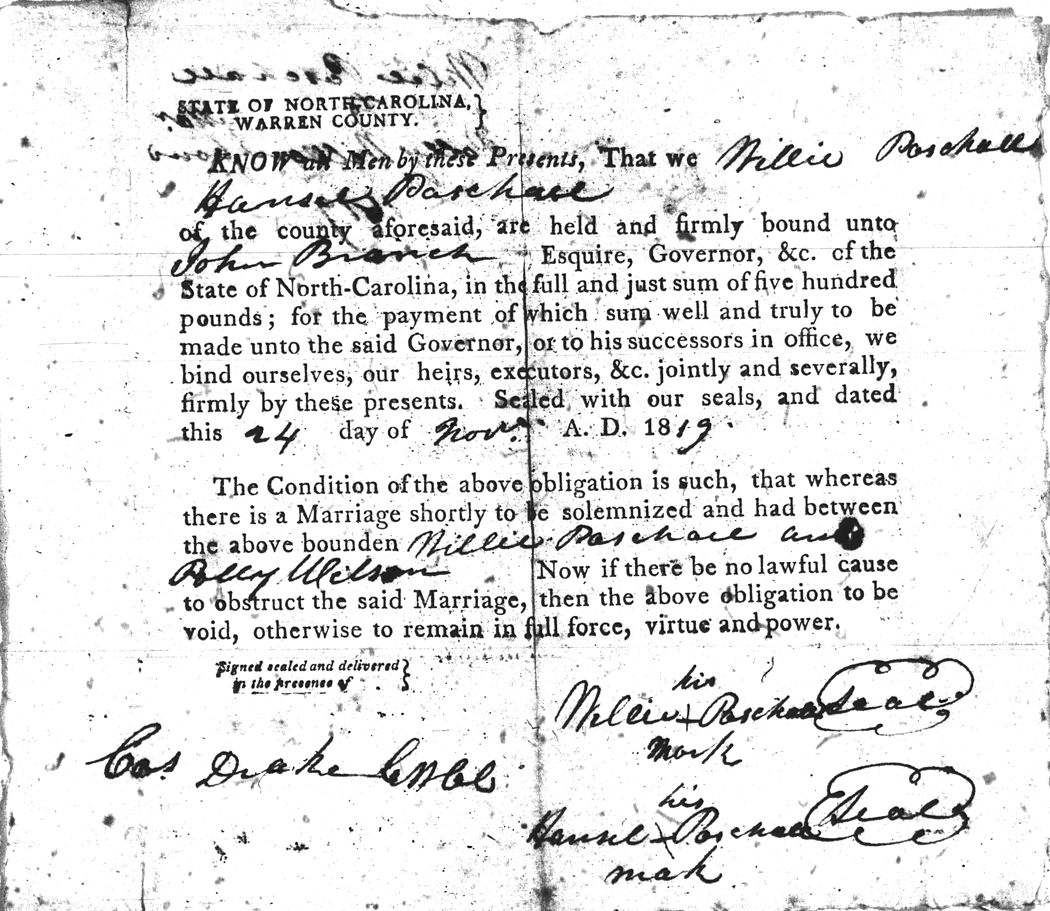 STATE OF NORTH-CAROLINA,
WARREN COUNTY.
KNOW all Men by these Presents, That we Willie Paschall
Hansel Paschall
of the county aforesaid, are held and firmly bound unto
John Branch Esquire, Governor, &c. of the
State of North-Carolina, in the full and just sum of five hundred
pounds; for the payment of which sum well and truly to be
made unto the said Governor, or to his successors in office, we
bind ourselves, our heirs, executors, &c. jointly and severally,
firmly by these presents. Sealed with our seals, and dated
this 24 day of Novr. A. D. 1819.
The Condition of the above obligation is such, that whereas
there is a Marriage shortly to be solemnized and had between
the above bounden Willie Paschall and
Polly Wilson Now if there be no lawful cause
to obstruct the said Marriage, then the above obligation to be
void, otherwise to remain in full force, virtue and power.
Signed sealed and delivered
in the presence of
his
Willie + Paschall Seal
mark
Cas. Drake CWCC
his
Hansel + Paschall Seal
mark